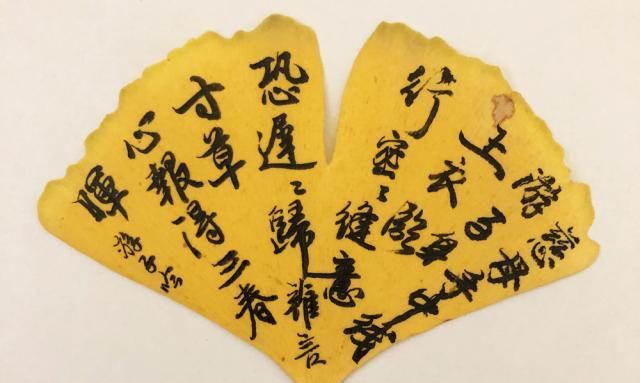 慈母手中線
游子身
上衣臨
行密〻縫意
恐遲〻歸誰言
寸草
心報得三春
暉
游子吟